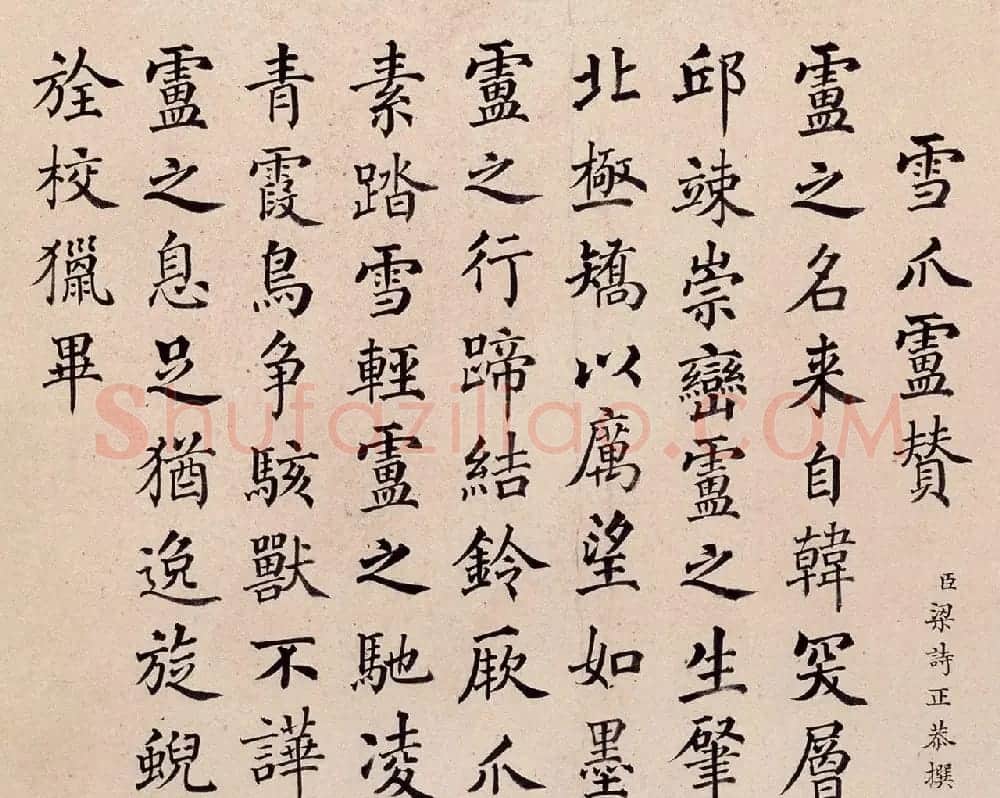 雪爪盧贊
臣梁詩正恭撰
盧之名来自韓突層
邱竦崇巒盧之生肇
北極矯以厲望如墨
盧之行蹄結鈴厥爪
素踏雪輕盧之馳凌
青霞鳥争駭獸不譁
盧之息足猶逸旋蜺
旍校獵畢
Shufaziliao.COM